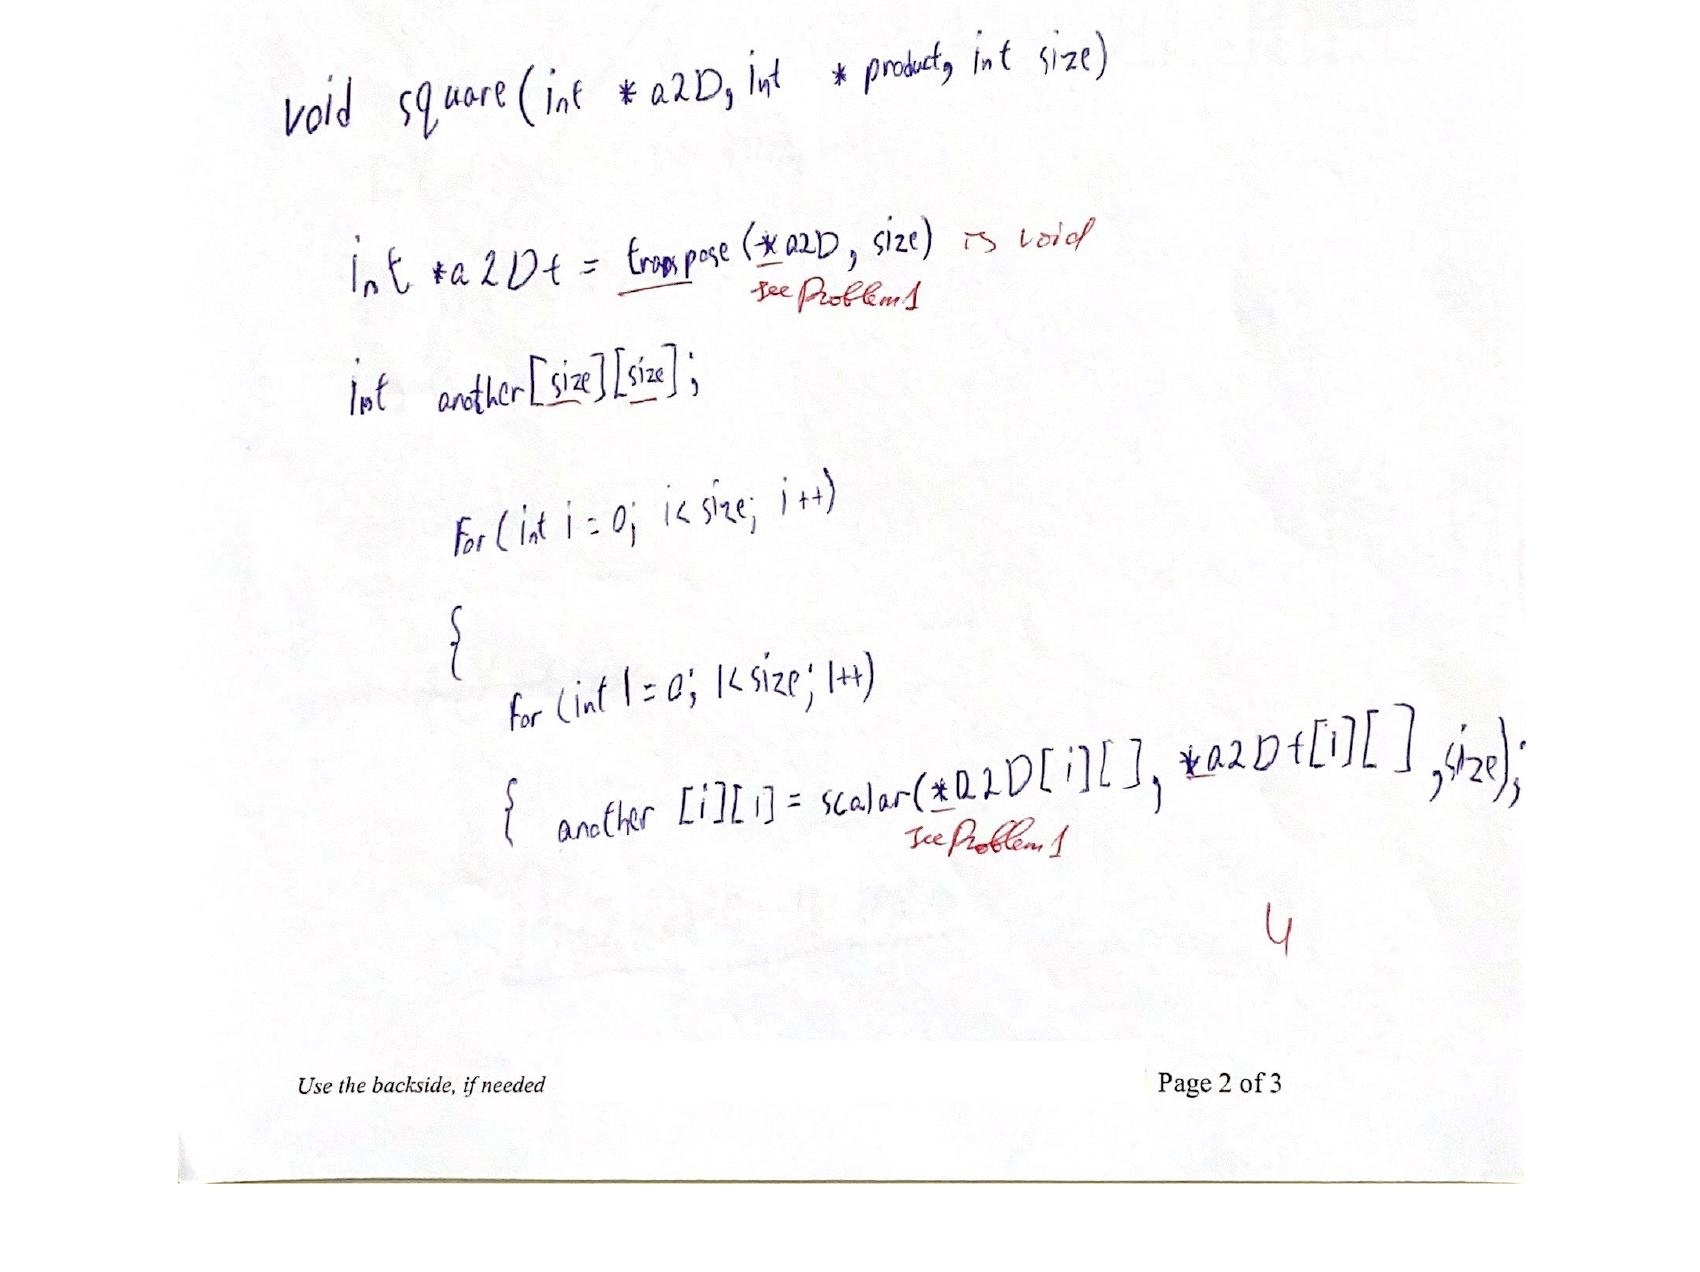 void square(int *a2D, int *product, int size)
int *a2Dt = transpose(*a2D, size) is void
see Problem 1
int another[size][size];
For(int i=0; i<size; i++)
{
for(int l=0; l<size; l++)
{ another [i][l] = scalar(*a2D[i][], *a2Dt[l][], size);
see Problem 1
4
Use the backside, if needed Page 2 of 3